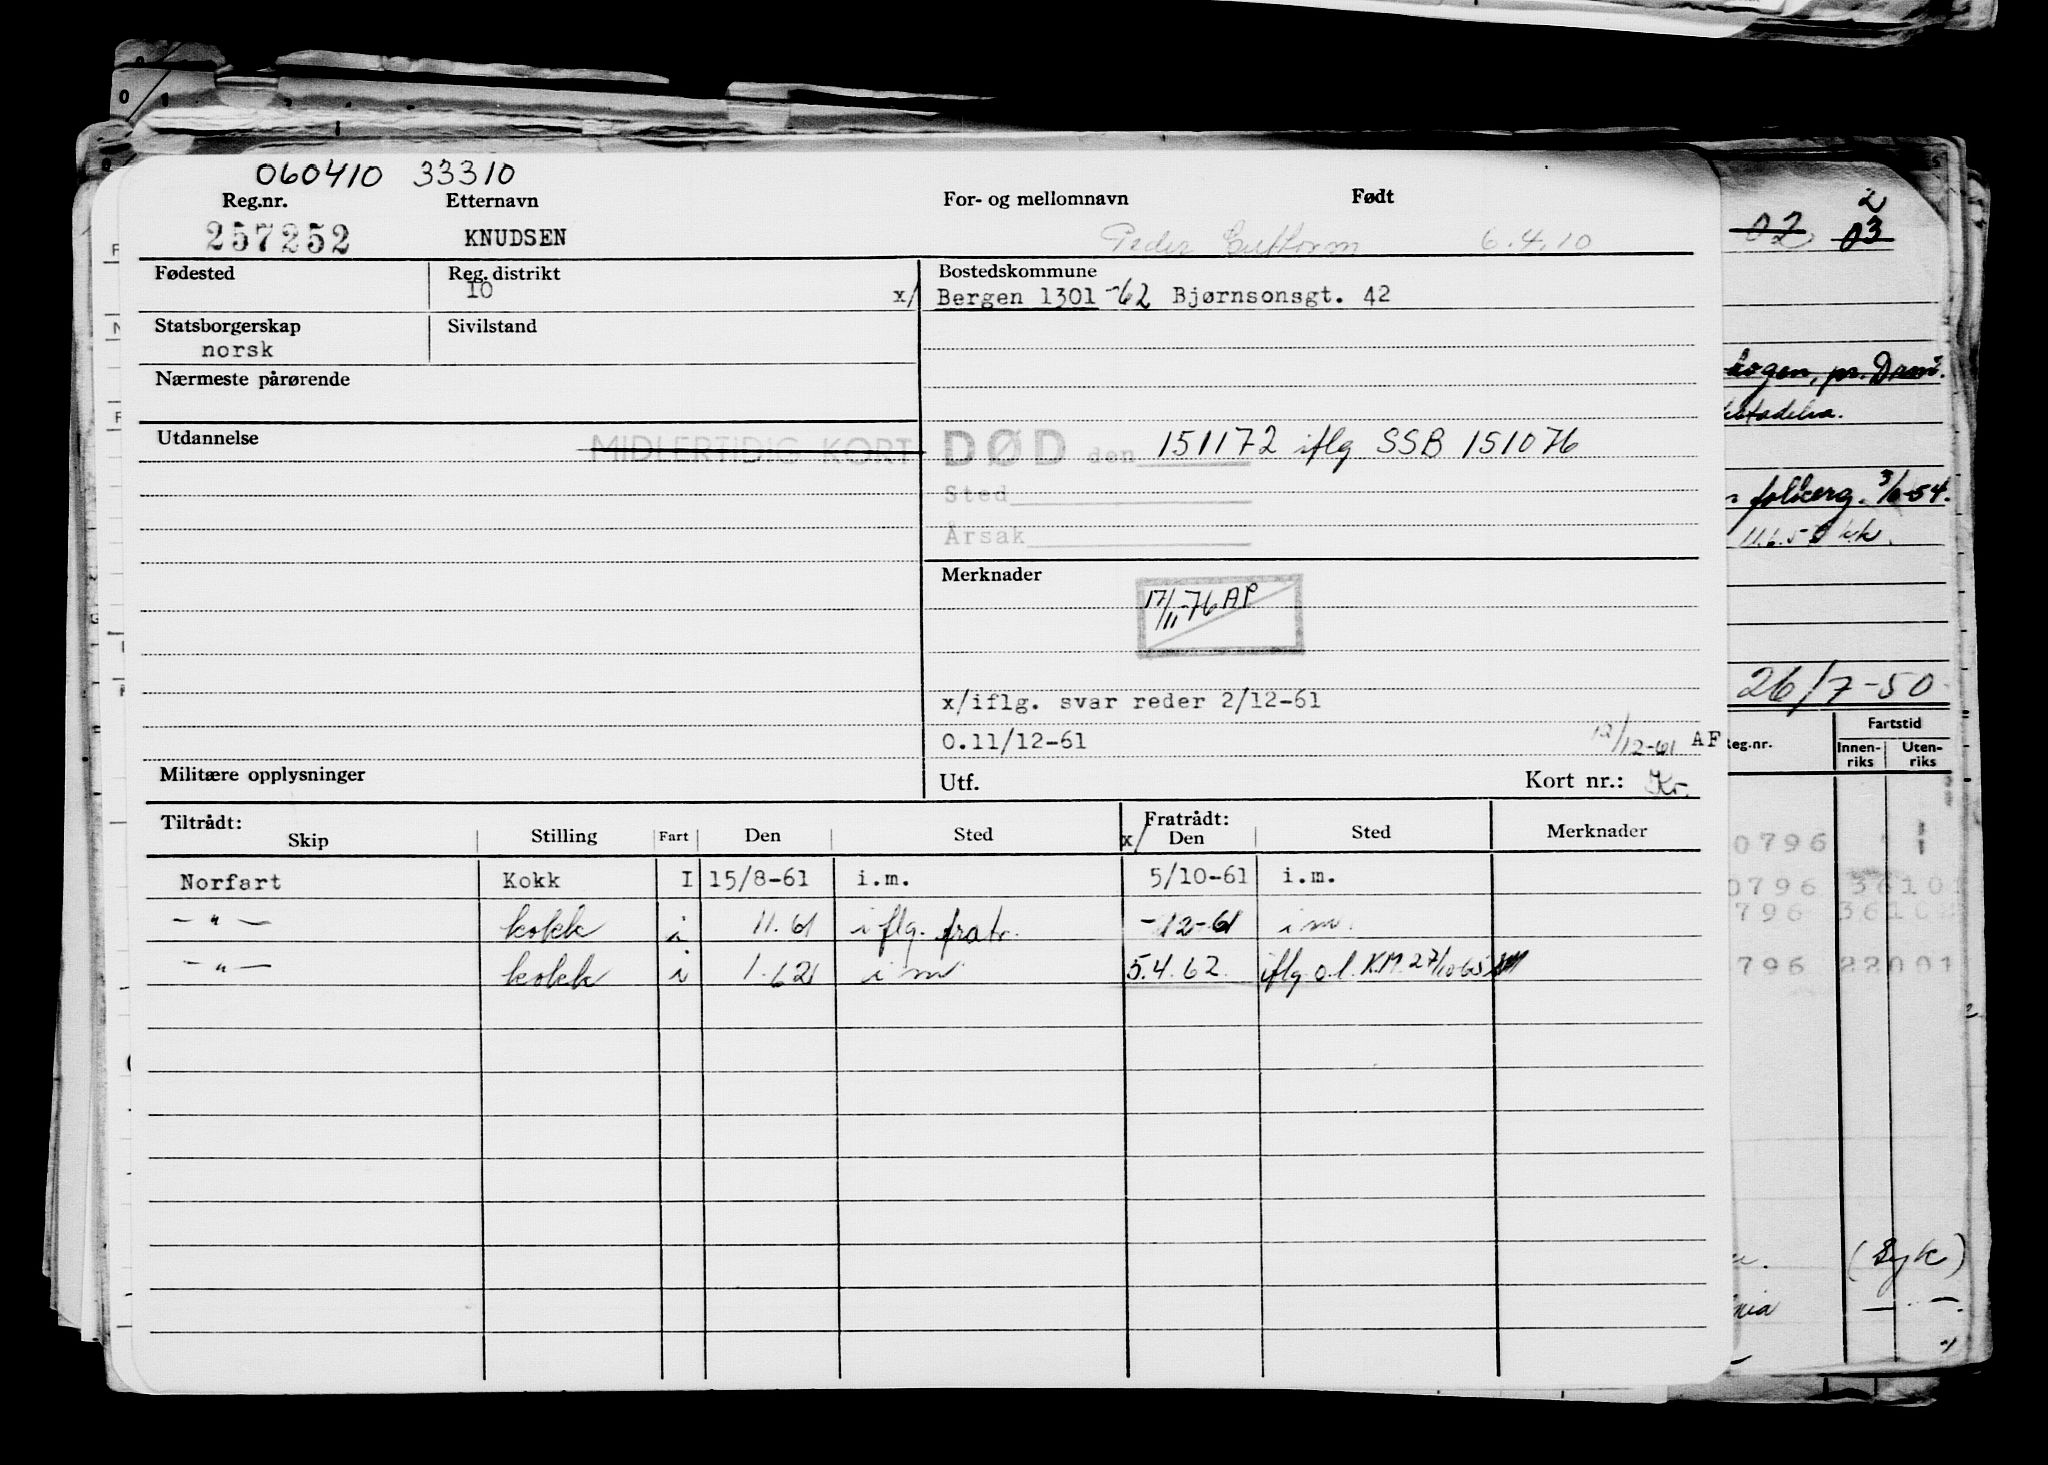 060410 33310
Reg.nr. Etternavn For- og mellomnavn Født
257252 KNUDSEN Peder Guttorm 6.4.10
Fødested Reg.distrikt Bostedskommune
10 x/ Bergen 1301 -62 Bjørnsonsgt. 42
Statsborgerskap Sivilstand
norsk
Nærmeste pårørende
Utdannelse MIDLERTIDIG KORT DØD den 151172 iflg SSB 151076
Sted
Årsak
Merknader
17/11-76 AP
x/iflg. svar reder 2/12-61
O.11/12-61 12/12-61 AF
Militære opplysninger Utf. Kort nr.: Kr.
Tiltrådt: Fratrådt:
Skip Stilling Fart Den Sted x/ Den Sted Merknader
Norfart Kokk I 15/8-61 i.m. 5/10-61 i.m.
— " — kokk i 11.61 iflg. fratr. -12-61 i m.
— " — kokk i 1.62 i m 5.4.62 iflg o.l. K.M. 27/10-65
2
02 03
pr. Dam.
folkerg. 3/6-54.
11.6.5
26/7-50
Reg.nr. Fartstid
Innen-riks Uten-riks
0796
0796 36101
796 3610
796 22001
(Syk)